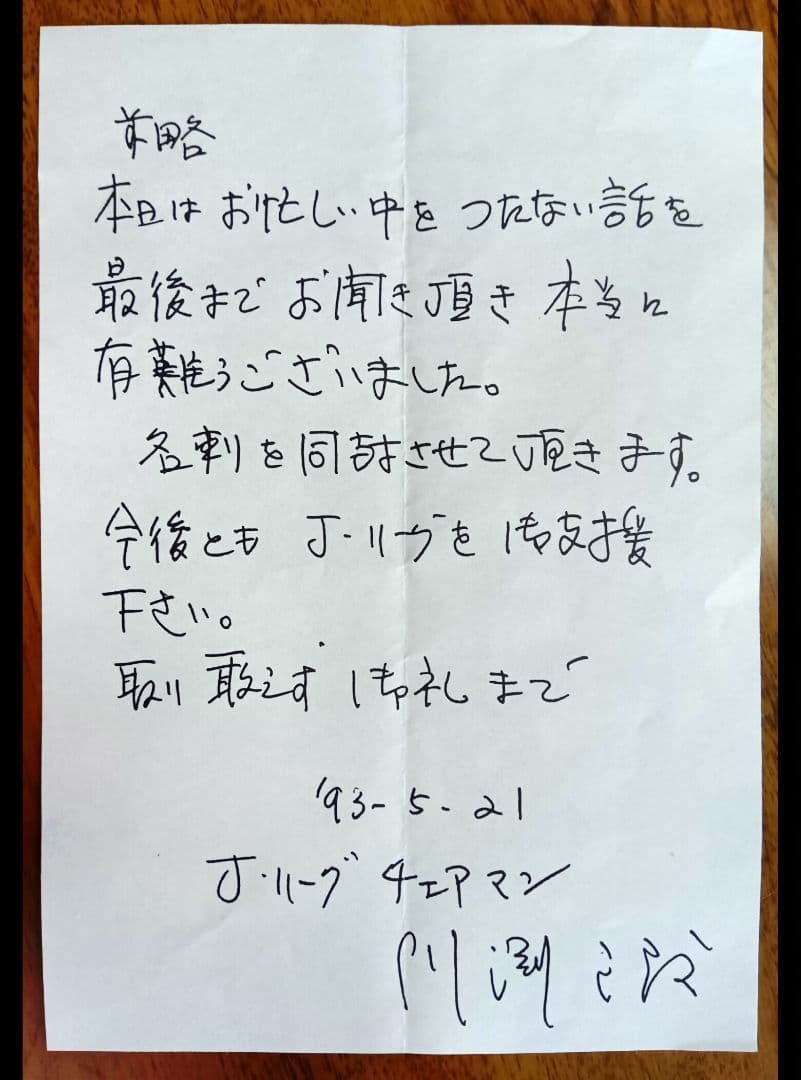 前略
本日は お忙しい中を つたない話を
最後まで お聞き頂き 本当に
有難うございました。
名刺を同封させて頂きます。
今後とも J・リーグを 御支援
下さい。
取り敢えず 御礼まで
'93-5-21
J・リーグ チェアマン
川淵三郎